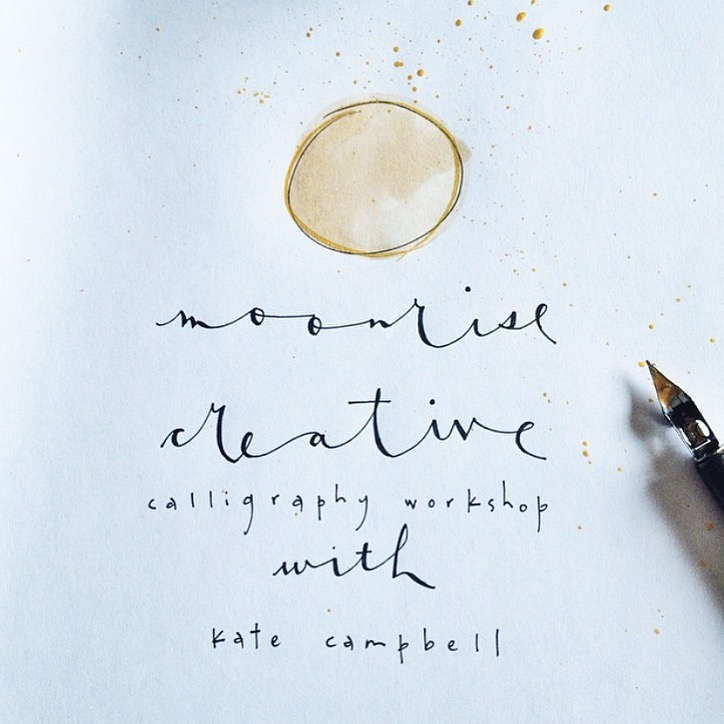 moonrise
creative
calligraphy workshop
with
kate campbell